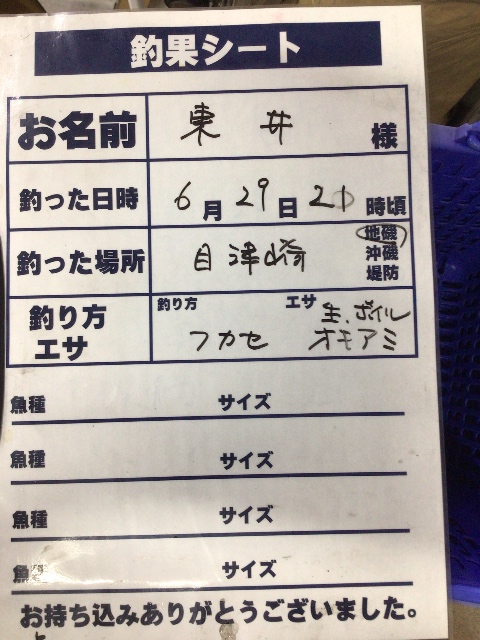 釣果シート
お名前 東 井 様
釣った日時 6月29日 20時頃
釣った場所 目津崎 地磯
沖磯
堤防
釣り方 エサ 釣り方 フカセ エサ 生、ボイル
オキアミ
魚種 サイズ
魚種 サイズ
魚種 サイズ
魚種 サイズ
お持ち込みありがとうございました。